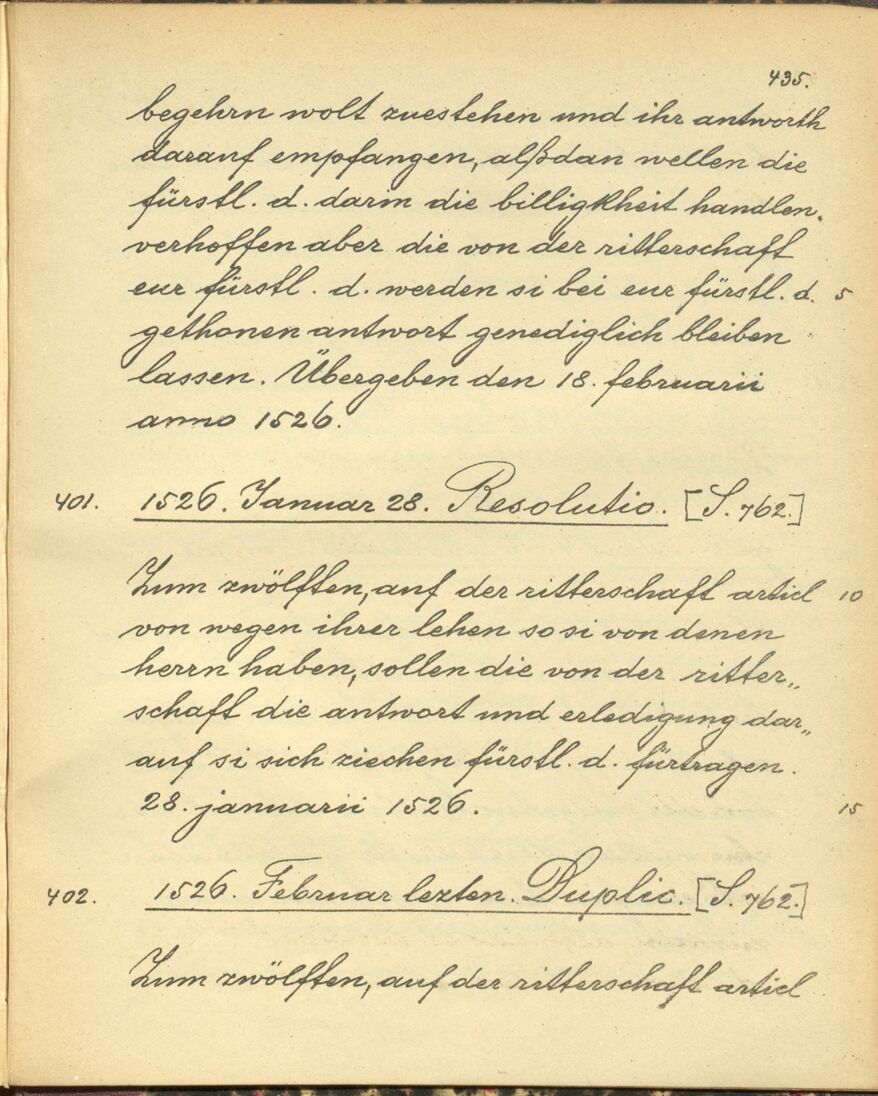 435.
begehrn wolt zuestehen und ihr antworth
darauf empfangen, alßdan wellen die
fürstl. d. darin die billigkheit handlen.
verhoffen aber die von der ritterschaft
eur fürstl. d. werden si bei eur fürstl. d. 5
gethonen antwort genediglich bleiben
lassen. Übergeben den 18. februarii
anno 1526.
401. 1526. Januar 28. Resolutio. [S. 762.]
Zum zwölften, auf der ritterschaft articl 10
von wegen ihrer lehen so si von denen
herrn haben, sollen die von der ritter„
schaft die antwort und erledigung dar„
auf si sich ziechen fürstl. d. fürtragen.
28. januarii 1526. 15
402. 1526. Februar lezten. Duplic. [S. 762.]
Zum zwölften, auf der ritterschaft articl